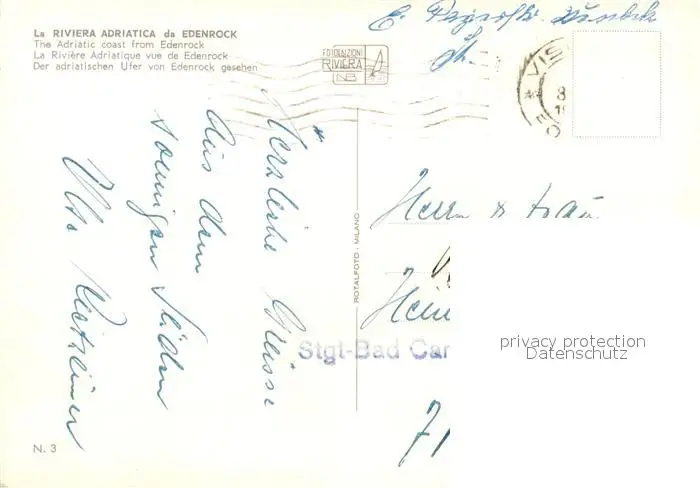 La RIVIERA ADRIATICA da EDENROCK
The Adriatic coast from Edenrock
La Rivière Adriatique vue de Edenrock
Der adriatischen Ufer von Edenrock gesehen
FOTOEDIZIONI
RIVIERA
NB
E.
VIS
8
Herzliche Grüsse
aus dem
sonnigen Süden
ROTALFOTO - MILANO
Herrn & Frau
Hein
Stgt-Bad Can
71
privacy protection
Datenschutz
N. 3